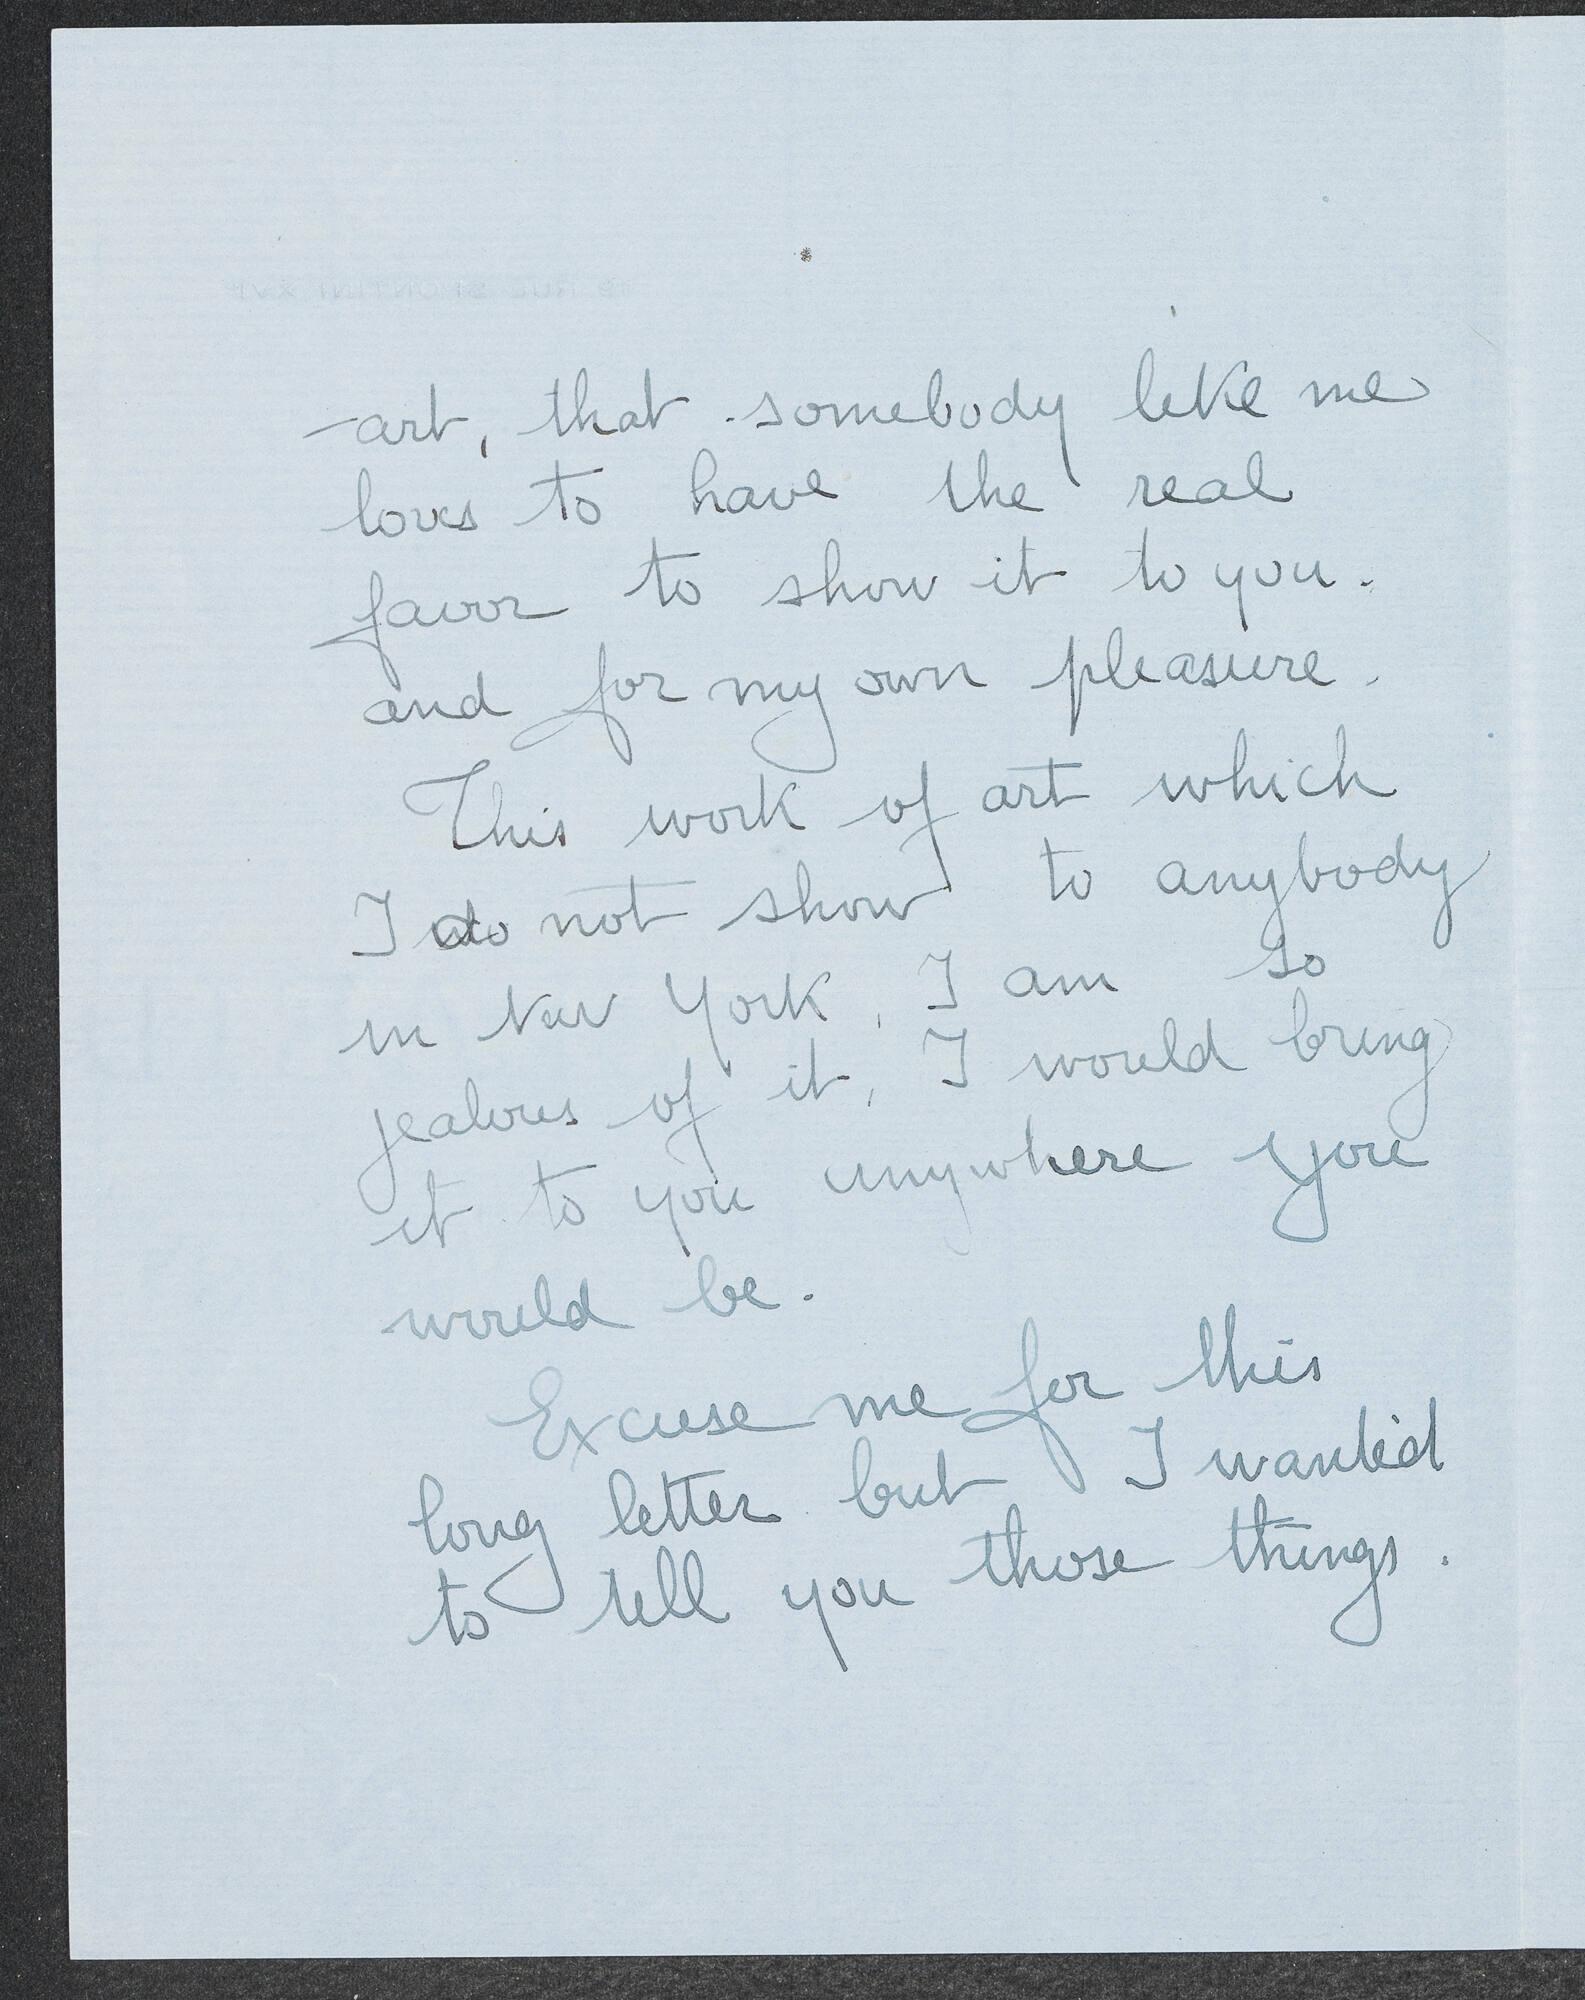 art, that somebody like me
loves to have the real
favor to show it to you.
and for my own pleasure.
This work of art which
I do not show to anybody
in New York, I am so
jealous of it, I would bring
it to you anywhere you
would be.
Excuse me for this
long letter but I wanted
to tell you those things.